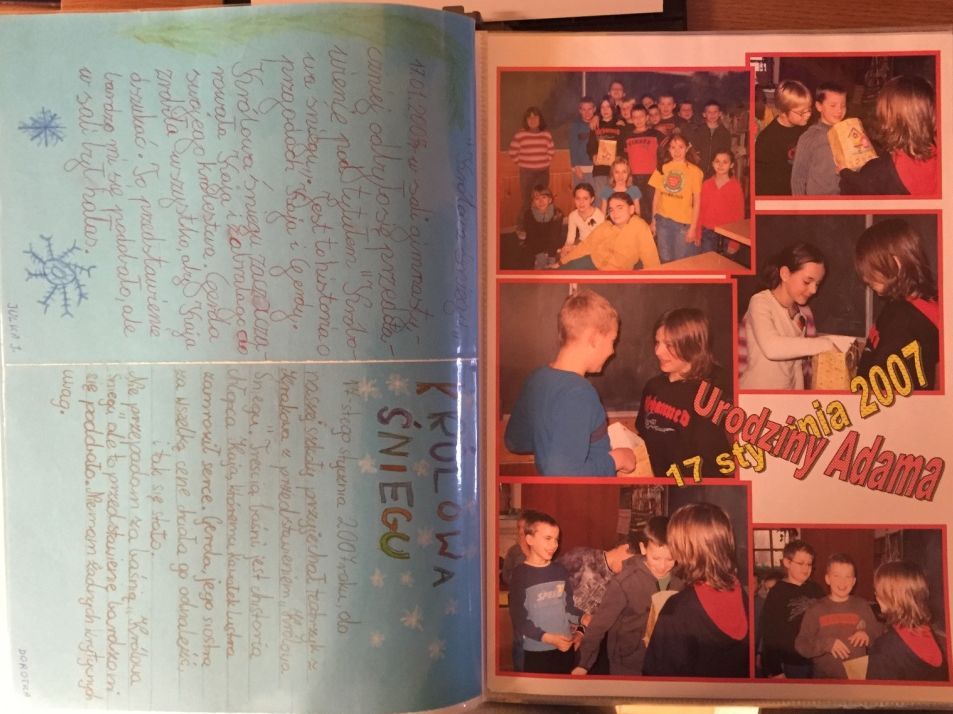 "Królowa Śniegu"
17.01.2007r. w sali gimnasty-
cznej odbyło się przedsta-
wienie pod tytułem "Królo-
wa śniegu". Jest to historia o
przygodach Kaja i Gerdy.
Królowa śniegu
Kaja i zabrała go do
swojego królestwa. Gerda
zrobiła wszystko, aby Kaja
odszukać. To przedstawienie
bardzo mi się podobało, ale
w sali był hałas.
JULKA J.
KRÓLOWA
ŚNIEGU
17-stego stycznia 2007 roku do
naszej szkoły przyjechał teatrzyk z
Krakowa z przedstawieniem „Królowa
Śniegu". Treścią baśni jest historia
chłopca Kaja, któremu kawałek lustra
zamroził serce. Gerda jego siostra
za wszelką cenę chciała go odnaleźć.
i tak się stało.
Nie przepadam za baśnią „Królowa
Śniegu", ale to przedstawienie bardzo mi
się podobało. Nie mam żadnych krytycznych
uwag.
DOROTKA
Urodziny Adama
17 stycznia 2007